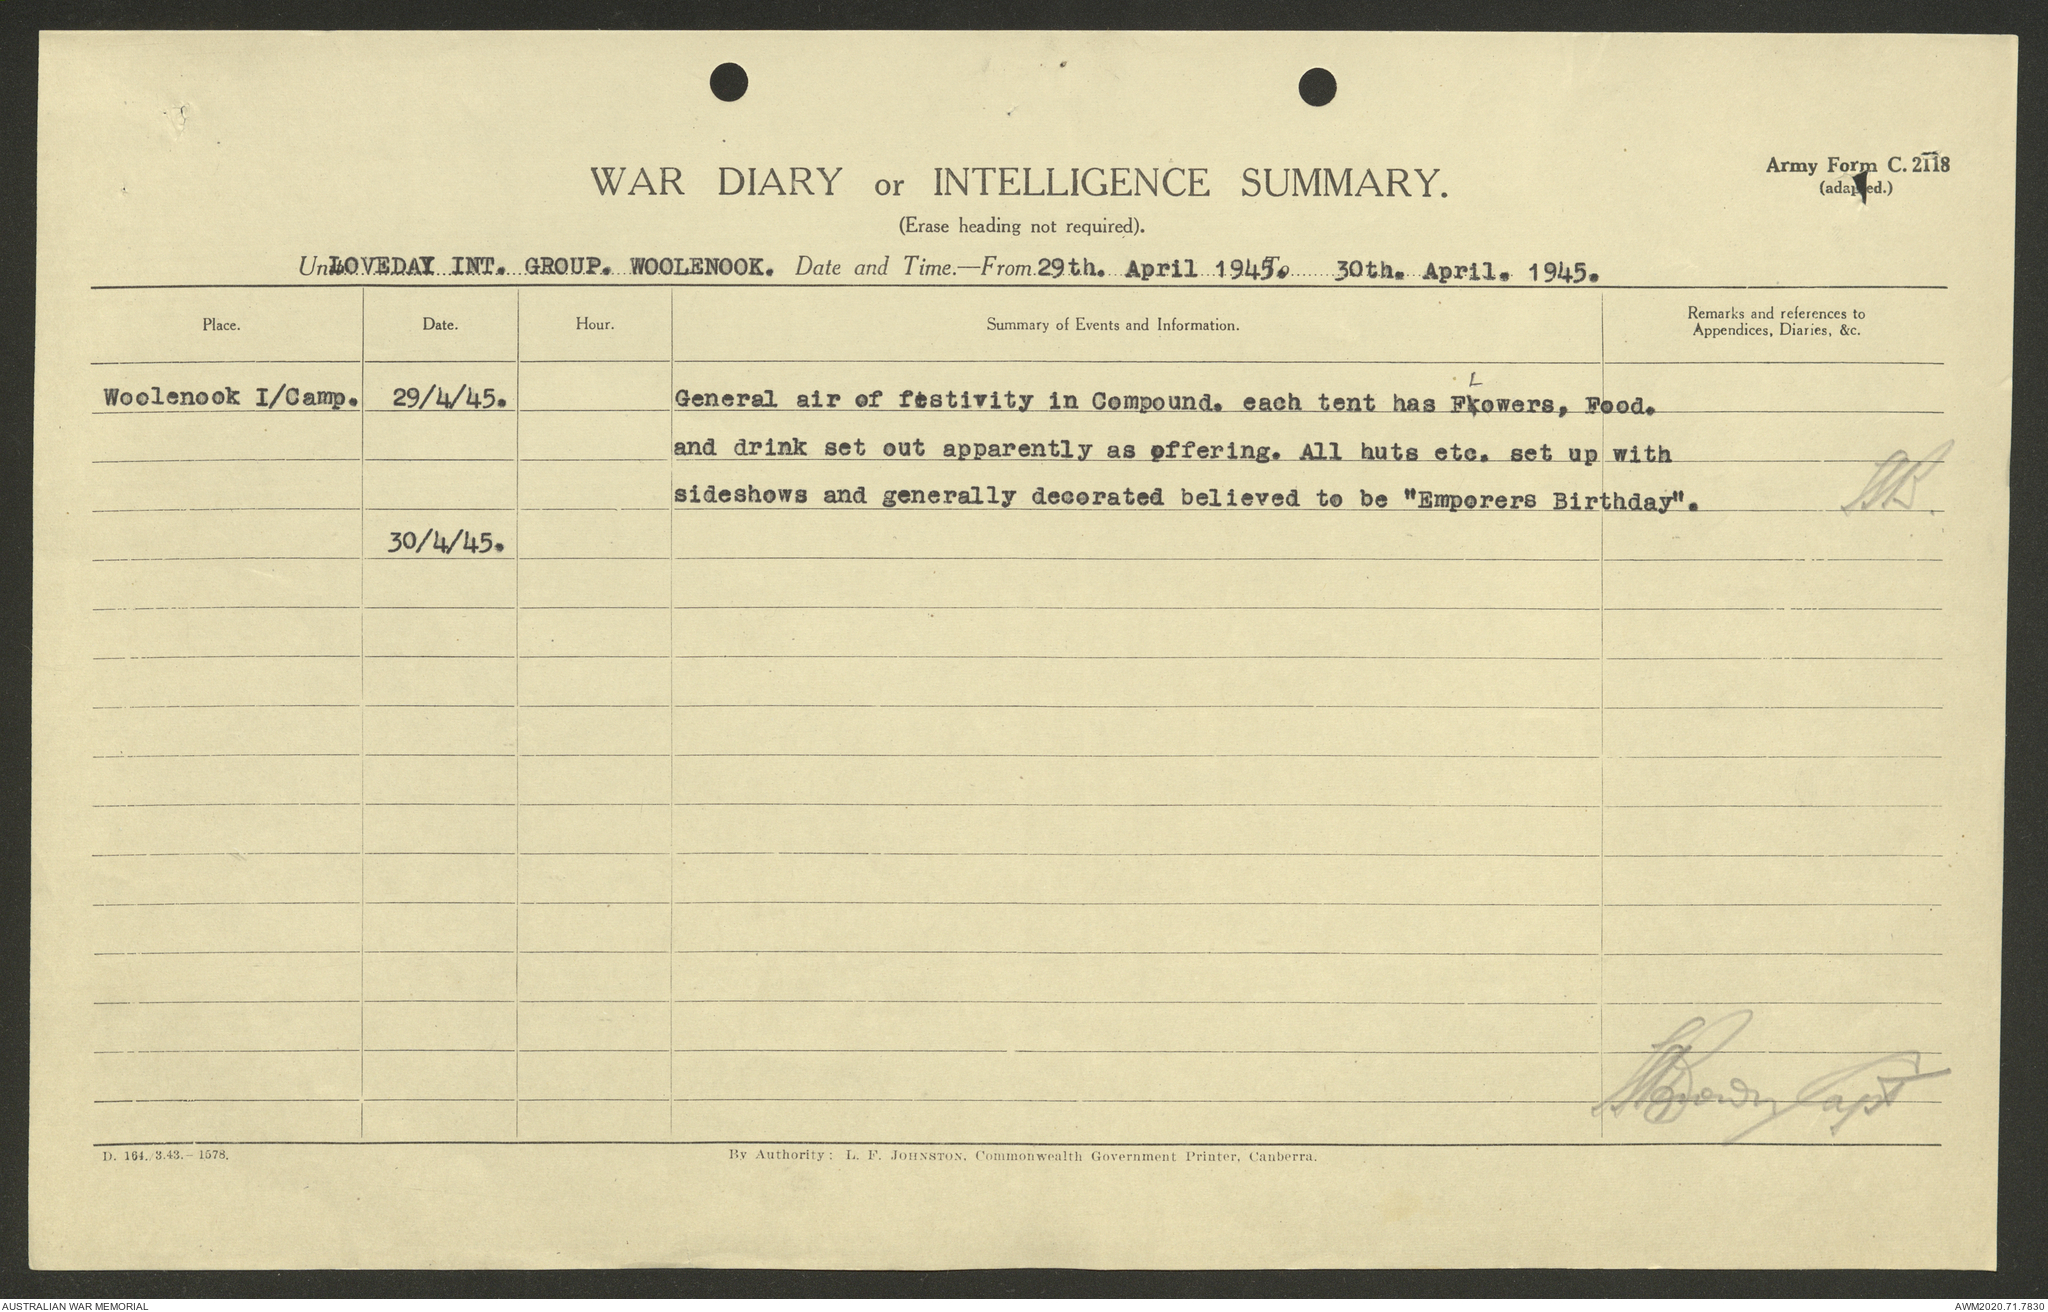 Army Form C. 2118
(adapted.)
WAR DIARY or INTELLIGENCE SUMMARY.
(Erase heading not required).
Unit LOVEDAY INT. GROUP. WOOLENOOK. Date and Time.—From 29th. April 1945. To 30th. April. 1945.
Place. Date. Hour. Summary of Events and Information. Remarks and references to
Appendices, Diaries, &c.
Woolenook I/Camp. 29/4/45. General air of festivity in Compound. each tent has Flowers, Food.
and drink set out apparently as offering. All huts etc. set up with
sideshows and generally decorated believed to be "Emporers Birthday".
30/4/45.
Capt
D. 164./3.43.—1578. By Authority: L. F. JOHNSTON, Commonwealth Government Printer, Canberra.
AUSTRALIAN WAR MEMORIAL AWM2020.71.7830